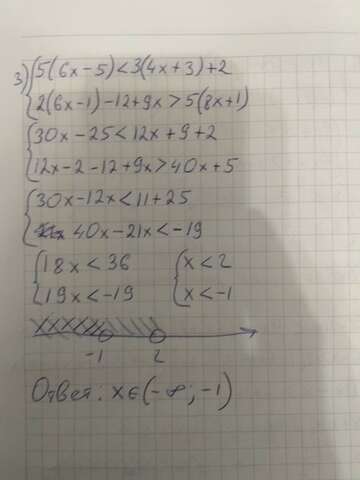 3) {5(6x-5)<3(4x+3)+2
{2(6x-1)-12+9x>5(8x+1)
{30x-25<12x+9+2
{12x-2-12+9x>40x+5
{30x-12x<11+25
{40x-21x<-19
{18x<36 {x<2
{19x<-19 {x<-1
-1 2
Ответ: x∈(-∞;-1)